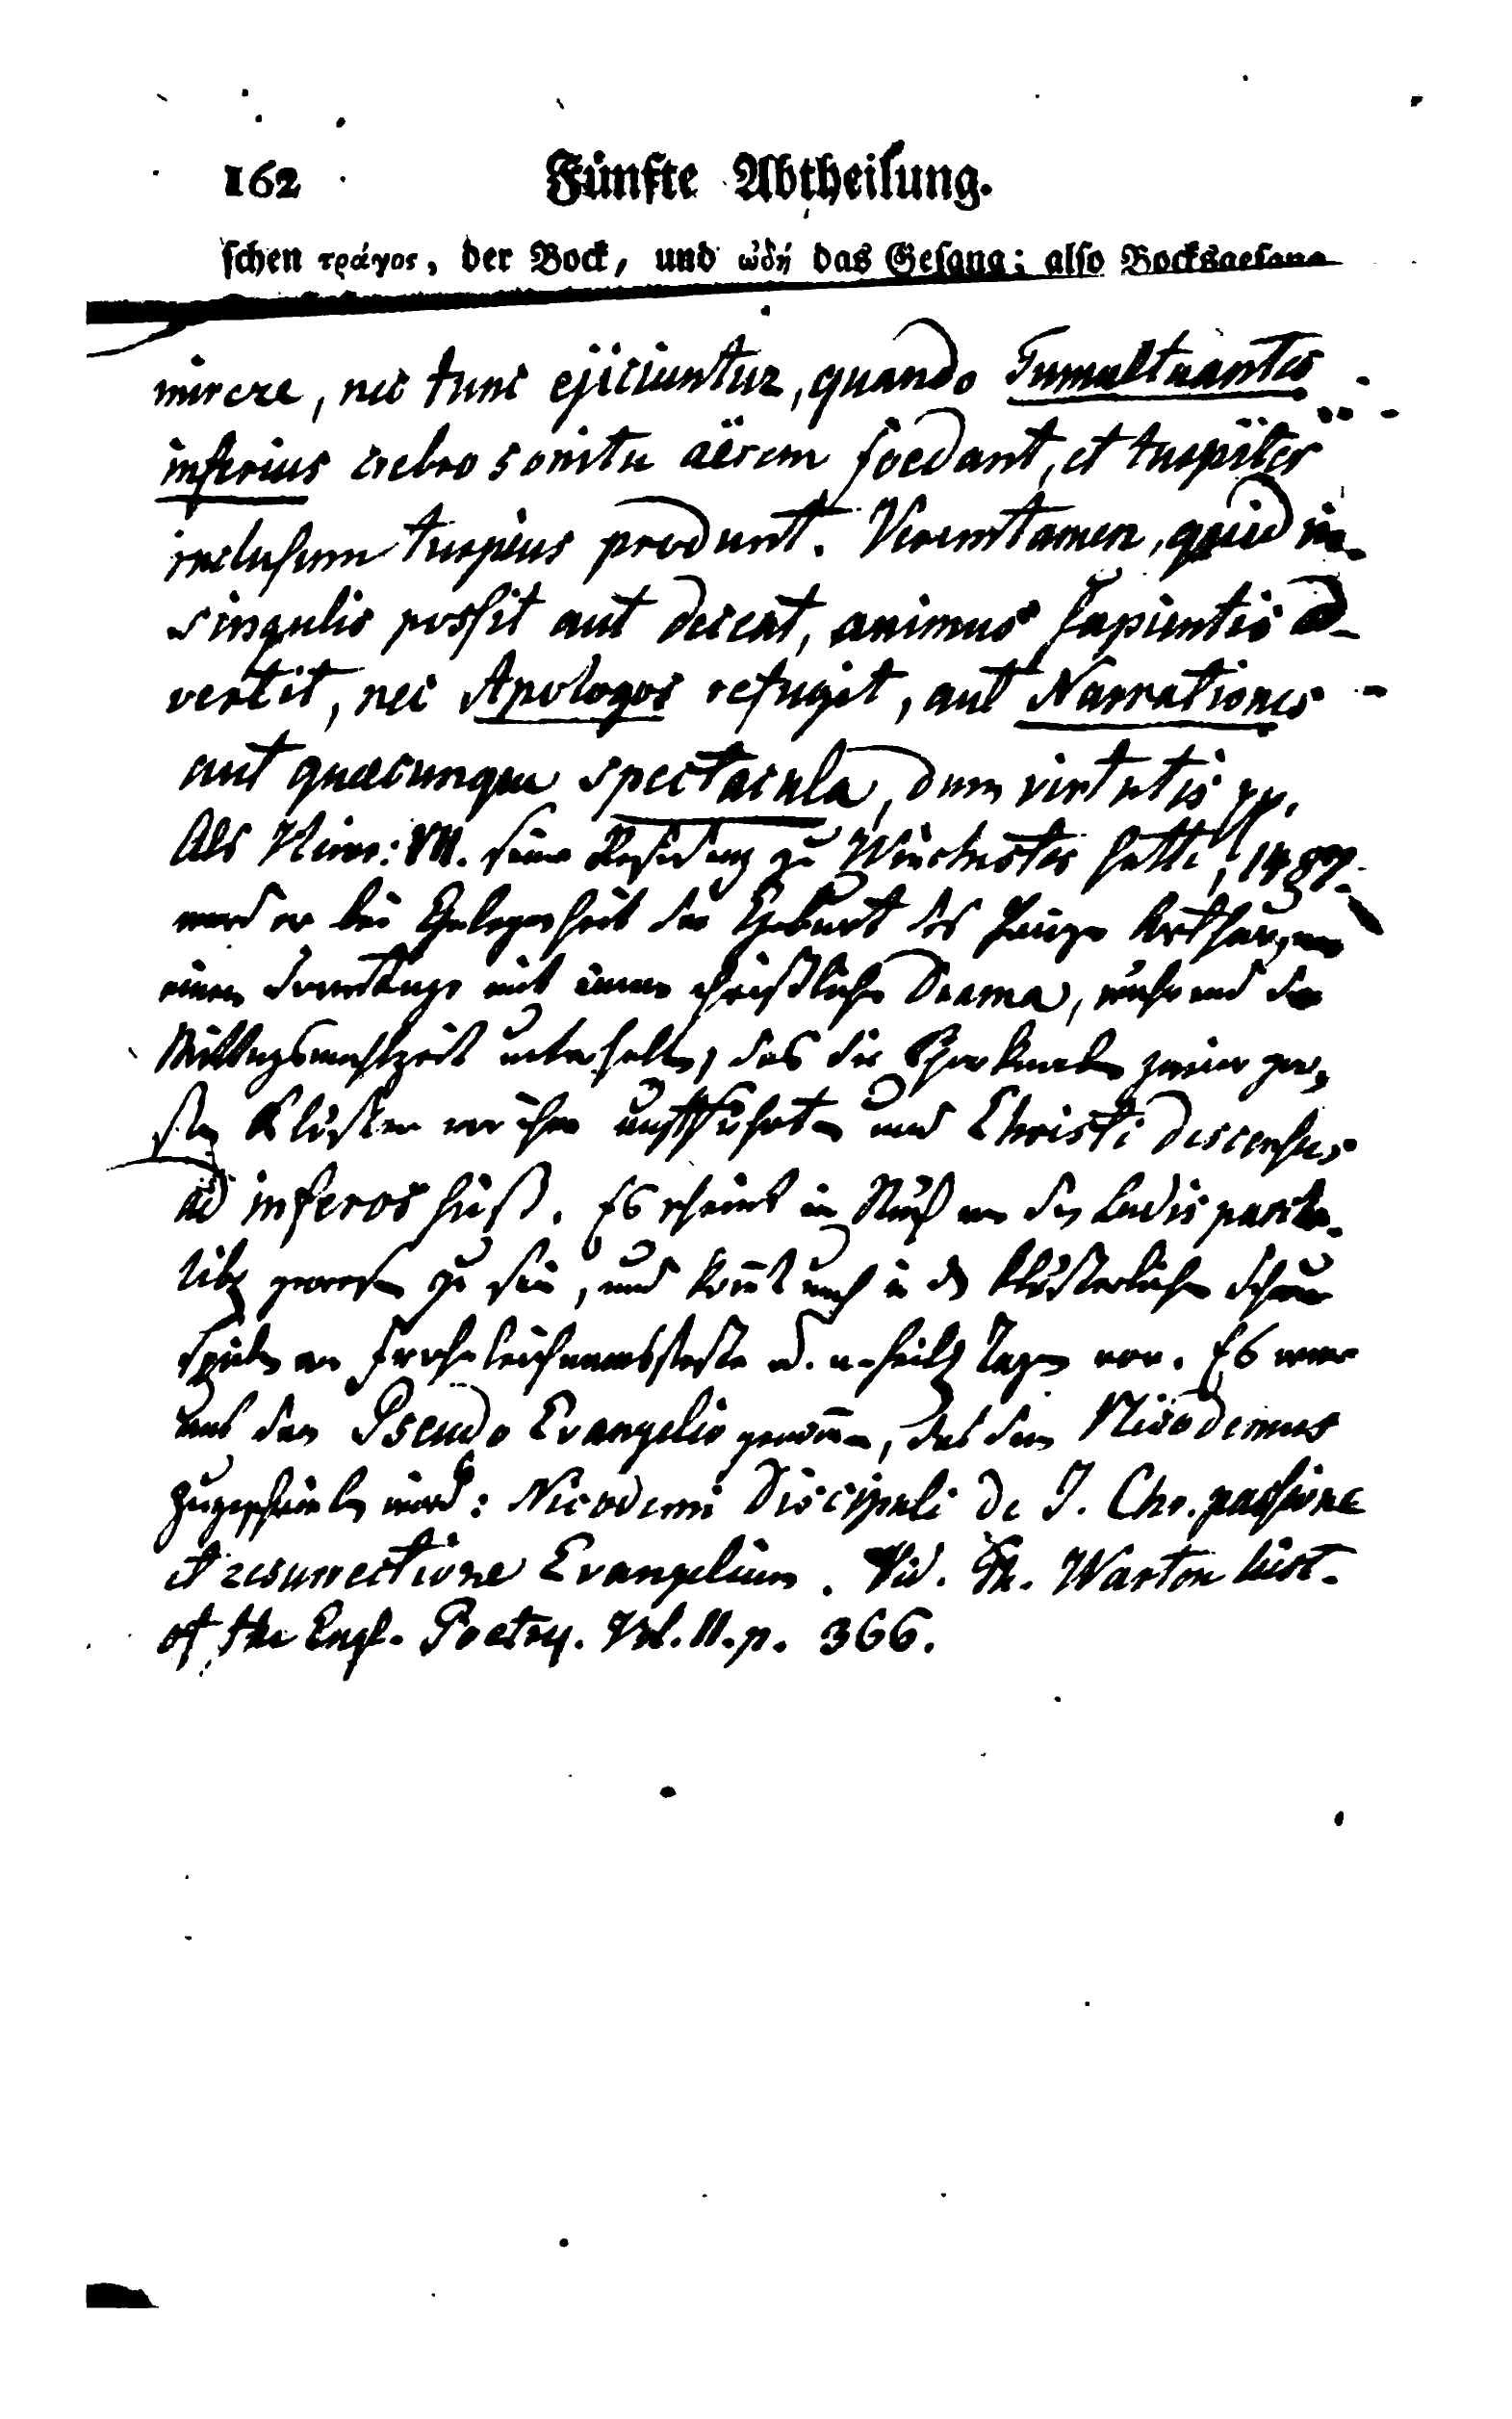 162 Fünfte Abtheilung.
schen τράγος, der Bock, und ᾠδή das Gesang; also Bocksgesang
mirere, nec tunc ejiciuntur, quando Tumultuantes
inferius crebro sonitu aërem foedant, et turpiter
inclusum turpius produnt. Verumtamen, quid in
singulis possit aut deceat, animus sapientis ad-
vertit, nec Apologos refugit, aut Narrationes
aut quaecunque spectacula, dum virtutis pp.
Als Heinr: VII. seine Residenz zu Winchester hatte, 1487.
ward er bei Gelegenheit der Geburt des Prinzen Arthur, an
einem Sonntage mit einem christlichen Drama, während der
Mittagsmahlzeit unterhalten, das die Chorknaben zweier
Klöster vor ihm aufführten und Christi descensus
ad inferos hieß. Es scheint ein Stück von den Ludis pascha-
libus gewesen zu sein, und kommt auch in den klösterlichen Schau-
spielen am Frohnleichnamsfeste und. a. heilg Tagen vor. Es war
aus dem Pseudo Evangelio genommen, das dem Nicodemus
zugeschrieben wird: Nicodemi Discipuli de J. Chr. passione
et resurrectione Evangelium. Vid. Th. Warton hist.
of the Engl. Poetry. Vol. II. p. 366.